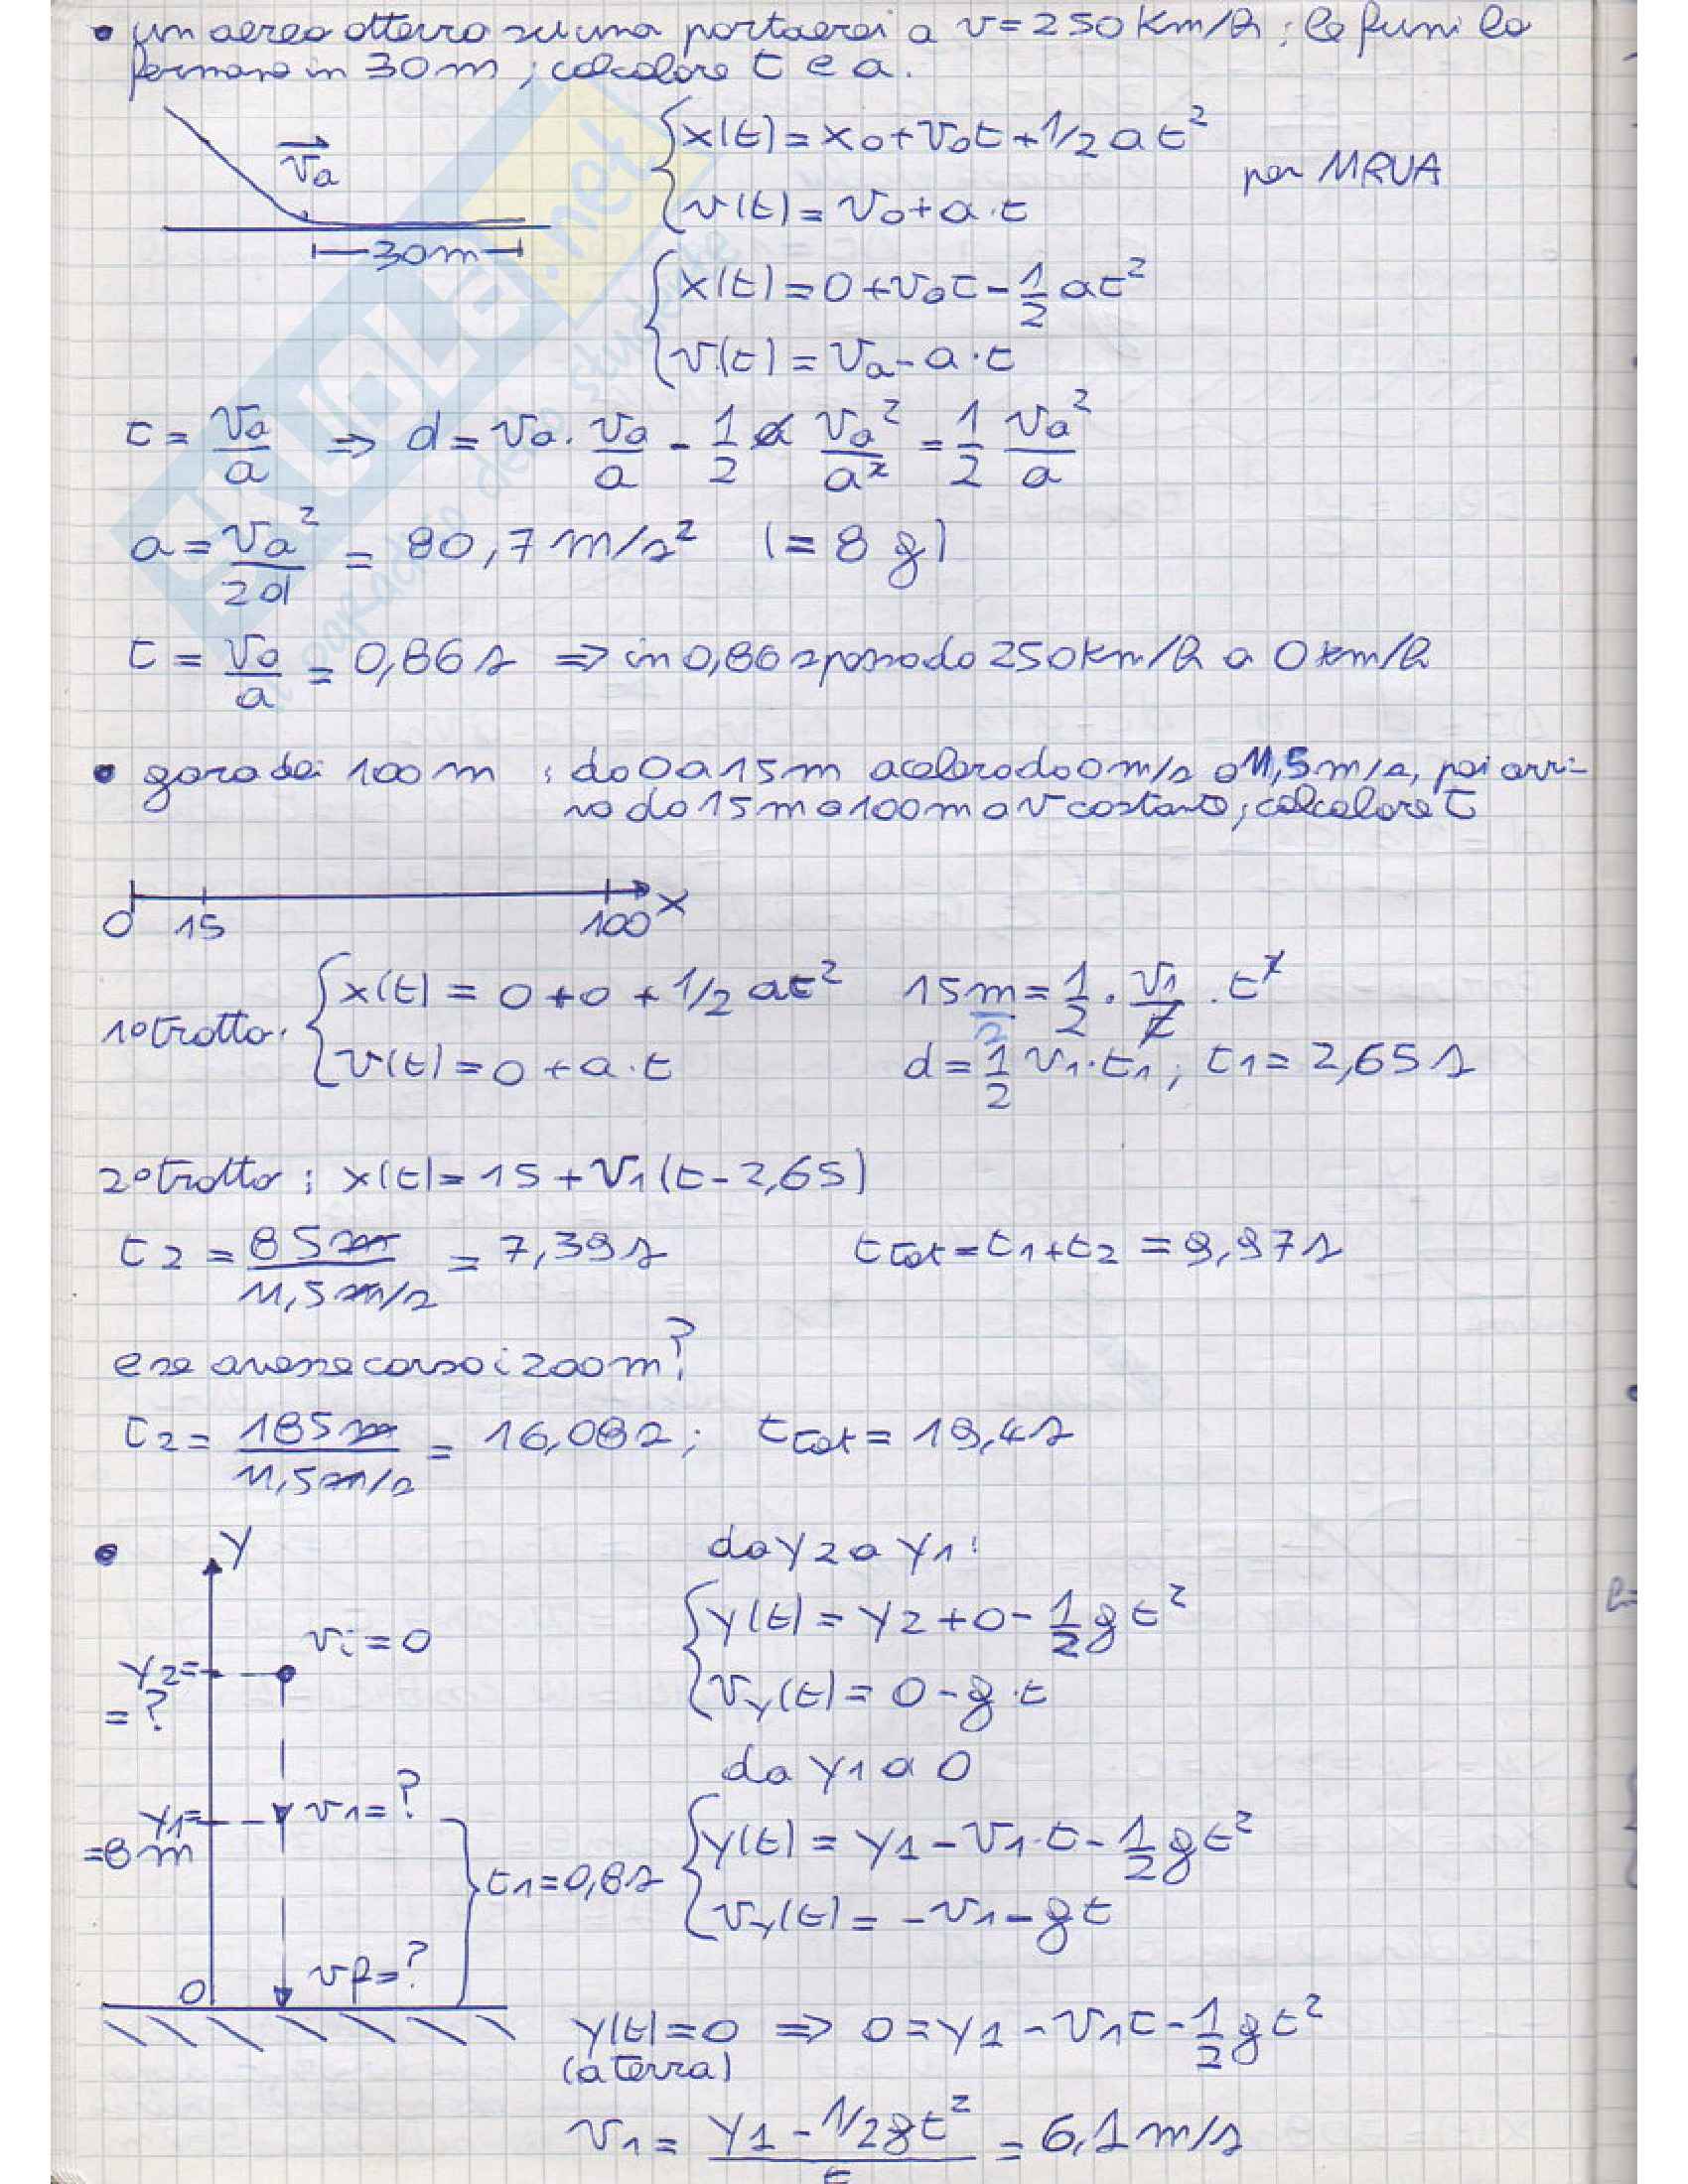 • un aereo atterra su una portaerei a v = 250 Km/h ; le funi lo
fermano in 30 m ; calcolare t e a.
{ x(t) = x0 + v0t + 1/2 at²
va
per MRUA
v(t) = v0 + a·t
30 m
{ x(t) = 0 + vat - 1/2 at²
v(t) = va - a·t
t = va/a ⇒ d = va · va/a - 1/2 a va²/a² = 1/2 va²/a
a = va²/2d = 80,7 m/s² (= 8 g)
t = va/a = 0,86 s ⇒ in 0,86 s passa da 250 km/h a 0 km/h
• gara dei 100 m : da 0 a 15 m accelera da 0 m/s a 11,5 m/s, poi arri-
va da 15 m a 100 m a v costante ; calcolare t
0 15 100 x
1° tratto. { x(t) = 0 + 0 + 1/2 at² 15 m = 1/2 · v1/t · t²
v(t) = 0 + a·t d = 1/2 v1·t1 ; t1 = 2,65 s
2° tratto : x(t) = 15 + v1 (t - 2,65)
t2 = 85 m / 11,5 m/s = 7,39 s t tot = t1 + t2 = 9,97 s
e se avesse corso i 200 m ?
t2 = 185 m / 11,5 m/s = 16,08 s ; t tot = 19,4 s
• y
da y2 a y1 :
vi = 0
{ y(t) = y2 + 0 - 1/2 gt²
y2 =
= ?
vy(t) = 0 - g·t
da y1 a 0
y1 =
v1 = ?
= 8 m
{ y(t) = y1 - v1·t - 1/2 gt²
t1 = 0,8 s
vy(t) = -v1 - gt
vf = ?
0
y(t) = 0 ⇒ 0 = y1 - v1t - 1/2 gt²
(a terra)
v1 = y1 - 1/2 gt² / t = 6,1 m/s
SKUOLA.net